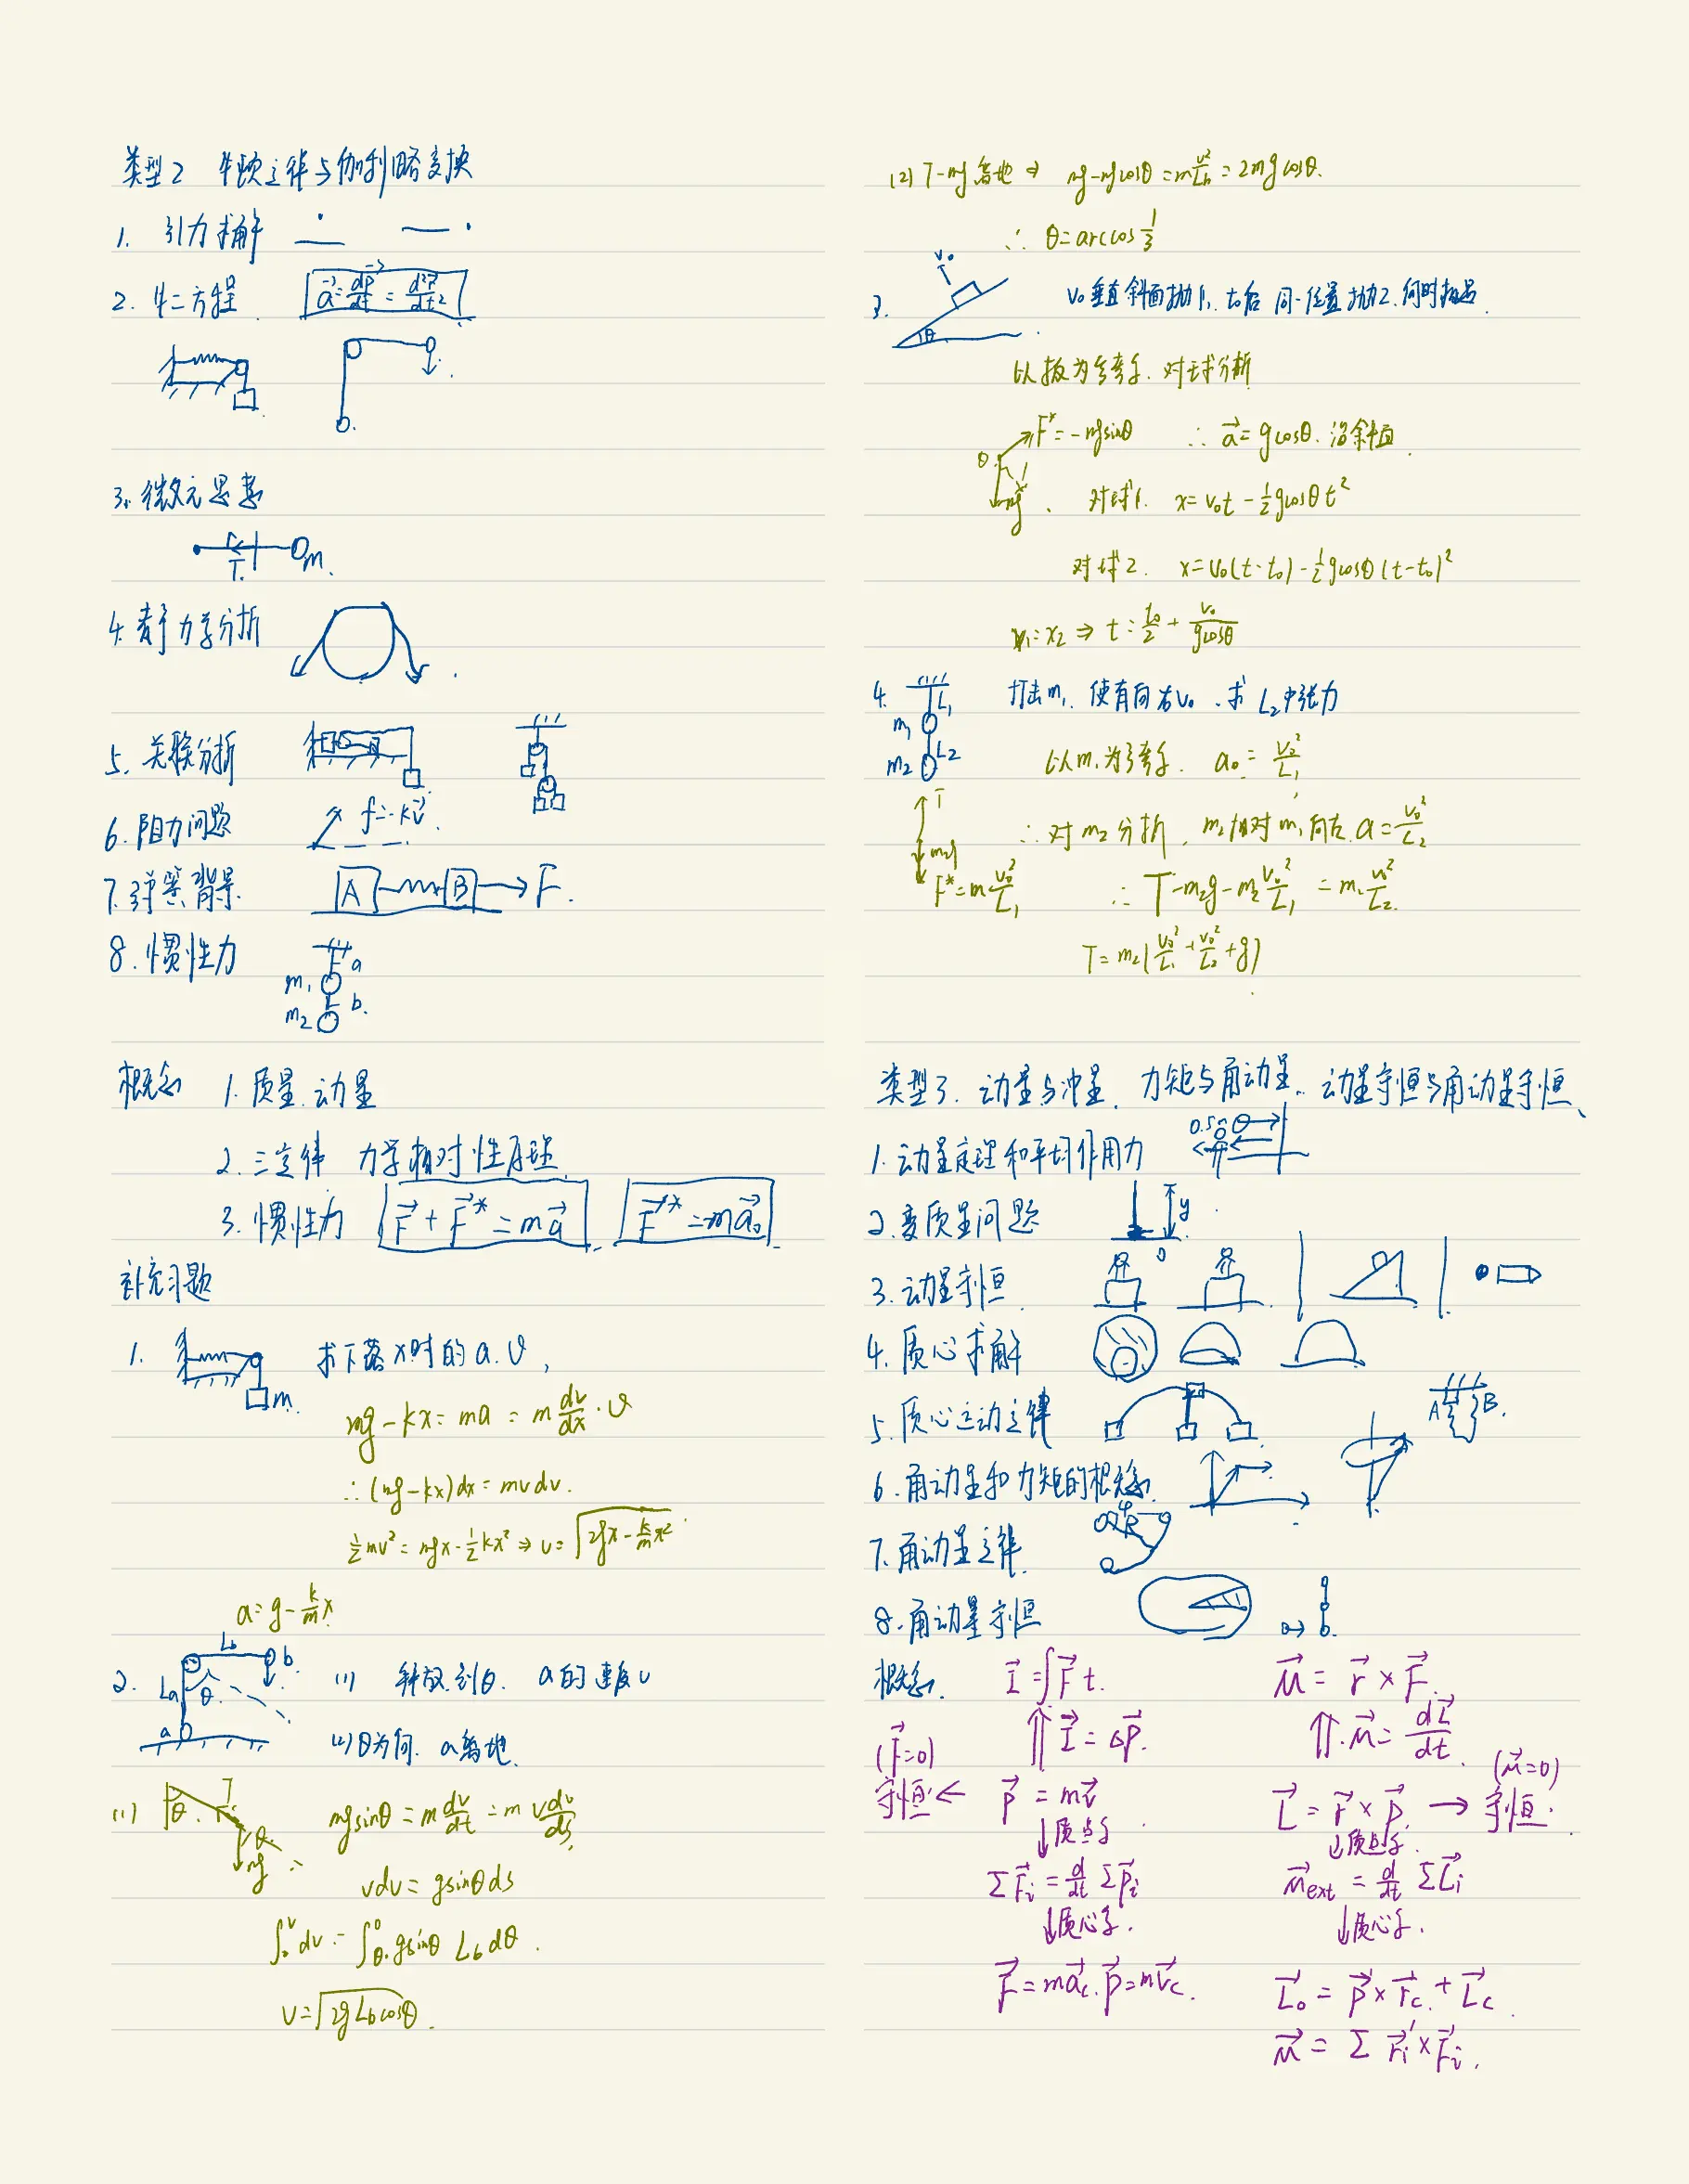 类型2 牛顿定律与伽利略变换
1. 引力求解
2. 牛二方程 a⃗=dp⃗/dt=d²r⃗/dt²
3. 微元思想
T. m.
4. 静力学分析
5. 关联分析
6. 阻力问题 f=-kv⃗.
7. 弹簧背景. A B F.
8. 惯性力
a
m₁
b.
m₂
概念 1. 质量. 动量
2. 三定律 力学相对性原理.
3. 惯性力 F⃗+F⃗*=ma⃗ F⃗*=ma⃗₀
补充习题
1. m. 求下落x时的a. v,
mg-kx=ma=m dv/dx·v
∴(mg-kx)dx=mvdv.
½mv²=mgx-½kx²⇒v=√(2gx-k/m x²)
a=g-k/m x
2. Lb b. La θ. a (1) 释放到θ. a的速度v
(2) θ为何. a离地.
(1) θ. T θ. mg ∴ mgsinθ=m dv/dt=m vdv/ds
vdv=gsinθds
v=√(2gLbcosθ).
(2) T-mg离地⇒ mg-mgcosθ=m v²/Lb=2mgcosθ.
∴ θ=arccos 1/3
3. v₀ θ v₀垂直斜面抛1, t₀后同一位置抛2. 何时相遇.
以板为参考系. 对球分析
F*=-mgsinθ ∴ a⃗=gcosθ. 沿斜面.
θ mg. 对球1. x=v₀t-½gcosθt²
对球2. x=v₀(t-t₀)-½gcosθ(t-t₀)²
x₁=x₂⇒t=t₀/2+v₀/gcosθ
4. L₁ m₁ L₂ m₂ 打击m₁, 使有向右v₀. 求L₂中张力
以m₁为参考系. a₀=v₀²/L₁
T m₂g ∴对m₂分析, m₂相对m₁向左. a=v₀²/L₂
F*=m v₀²/L₁ ∴ T-m₂g-m₂ v₀²/L₁=m₂ v₀²/L₂.
T=m₂(v₀²/L₁+v₀²/L₂+g)
类型3. 动量与冲量. 力矩与角动量. 动量守恒与角动量守恒、
1. 动量定理和平均作用力
2. 变质量问题 y
3. 动量守恒
4. 质心求解
5. 质心运动定律 A B.
6. 角动量和力矩的概念.
7. 角动量定律.
8. 角动量守恒
概念. I⃗=∫F⃗t. M⃗=r⃗×F⃗.
(F⃗=0) ⇑ I⃗=ΔP⃗. ⇑ M⃗=dL⃗/dt. (M⃗=0)
守恒← P⃗=mv⃗ L⃗=r⃗×P⃗. →守恒.
↓质点系. ↓质点系.
ΣF⃗i=d/dt ΣP⃗i M⃗ext=d/dt ΣL⃗i
↓质心系. ↓质心系.
F⃗=ma⃗c. P⃗=mv⃗c. L⃗₀=P⃗×r⃗c+L⃗c.
M⃗=Σ r⃗i'×F⃗i.